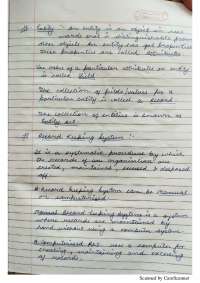 # Entity :- An entity is an object in real
world that is distinguishable from
other objects. An entity has got properties
These properties are called attributes
The value of a particular attribute in entity
is called field
The collection of fields/values for a
particular entity is called a record
The collection of entities is known as
Entity set.
# Record Keeping System :-
It is a systematic procedure by which
the records of an organisation are
created, maintained, accessed & disposed
off.
Record keeping system can be manual
or computerised
Manual Record keeping system is a system
where records are maintained by
hand without using a computer system
A computerised uses a computer for
creating, maintaining and accessing
of records.
Scanned by CamScanner